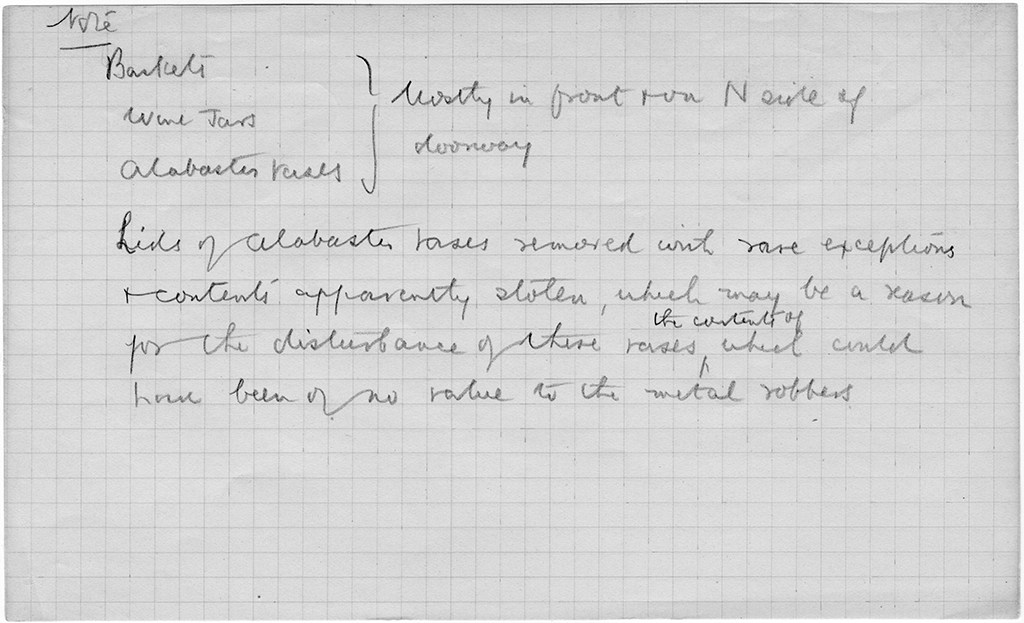 Note
Baskets
Wine Jars
Alabaster vases
} Mostly in front & on N side of
doorway
Lids of alabaster vases removed with rare exceptions
& contents apparently stolen, which may be a reason
for the disturbance of these vases, the contents of which could
have been of no value to the metal robbers